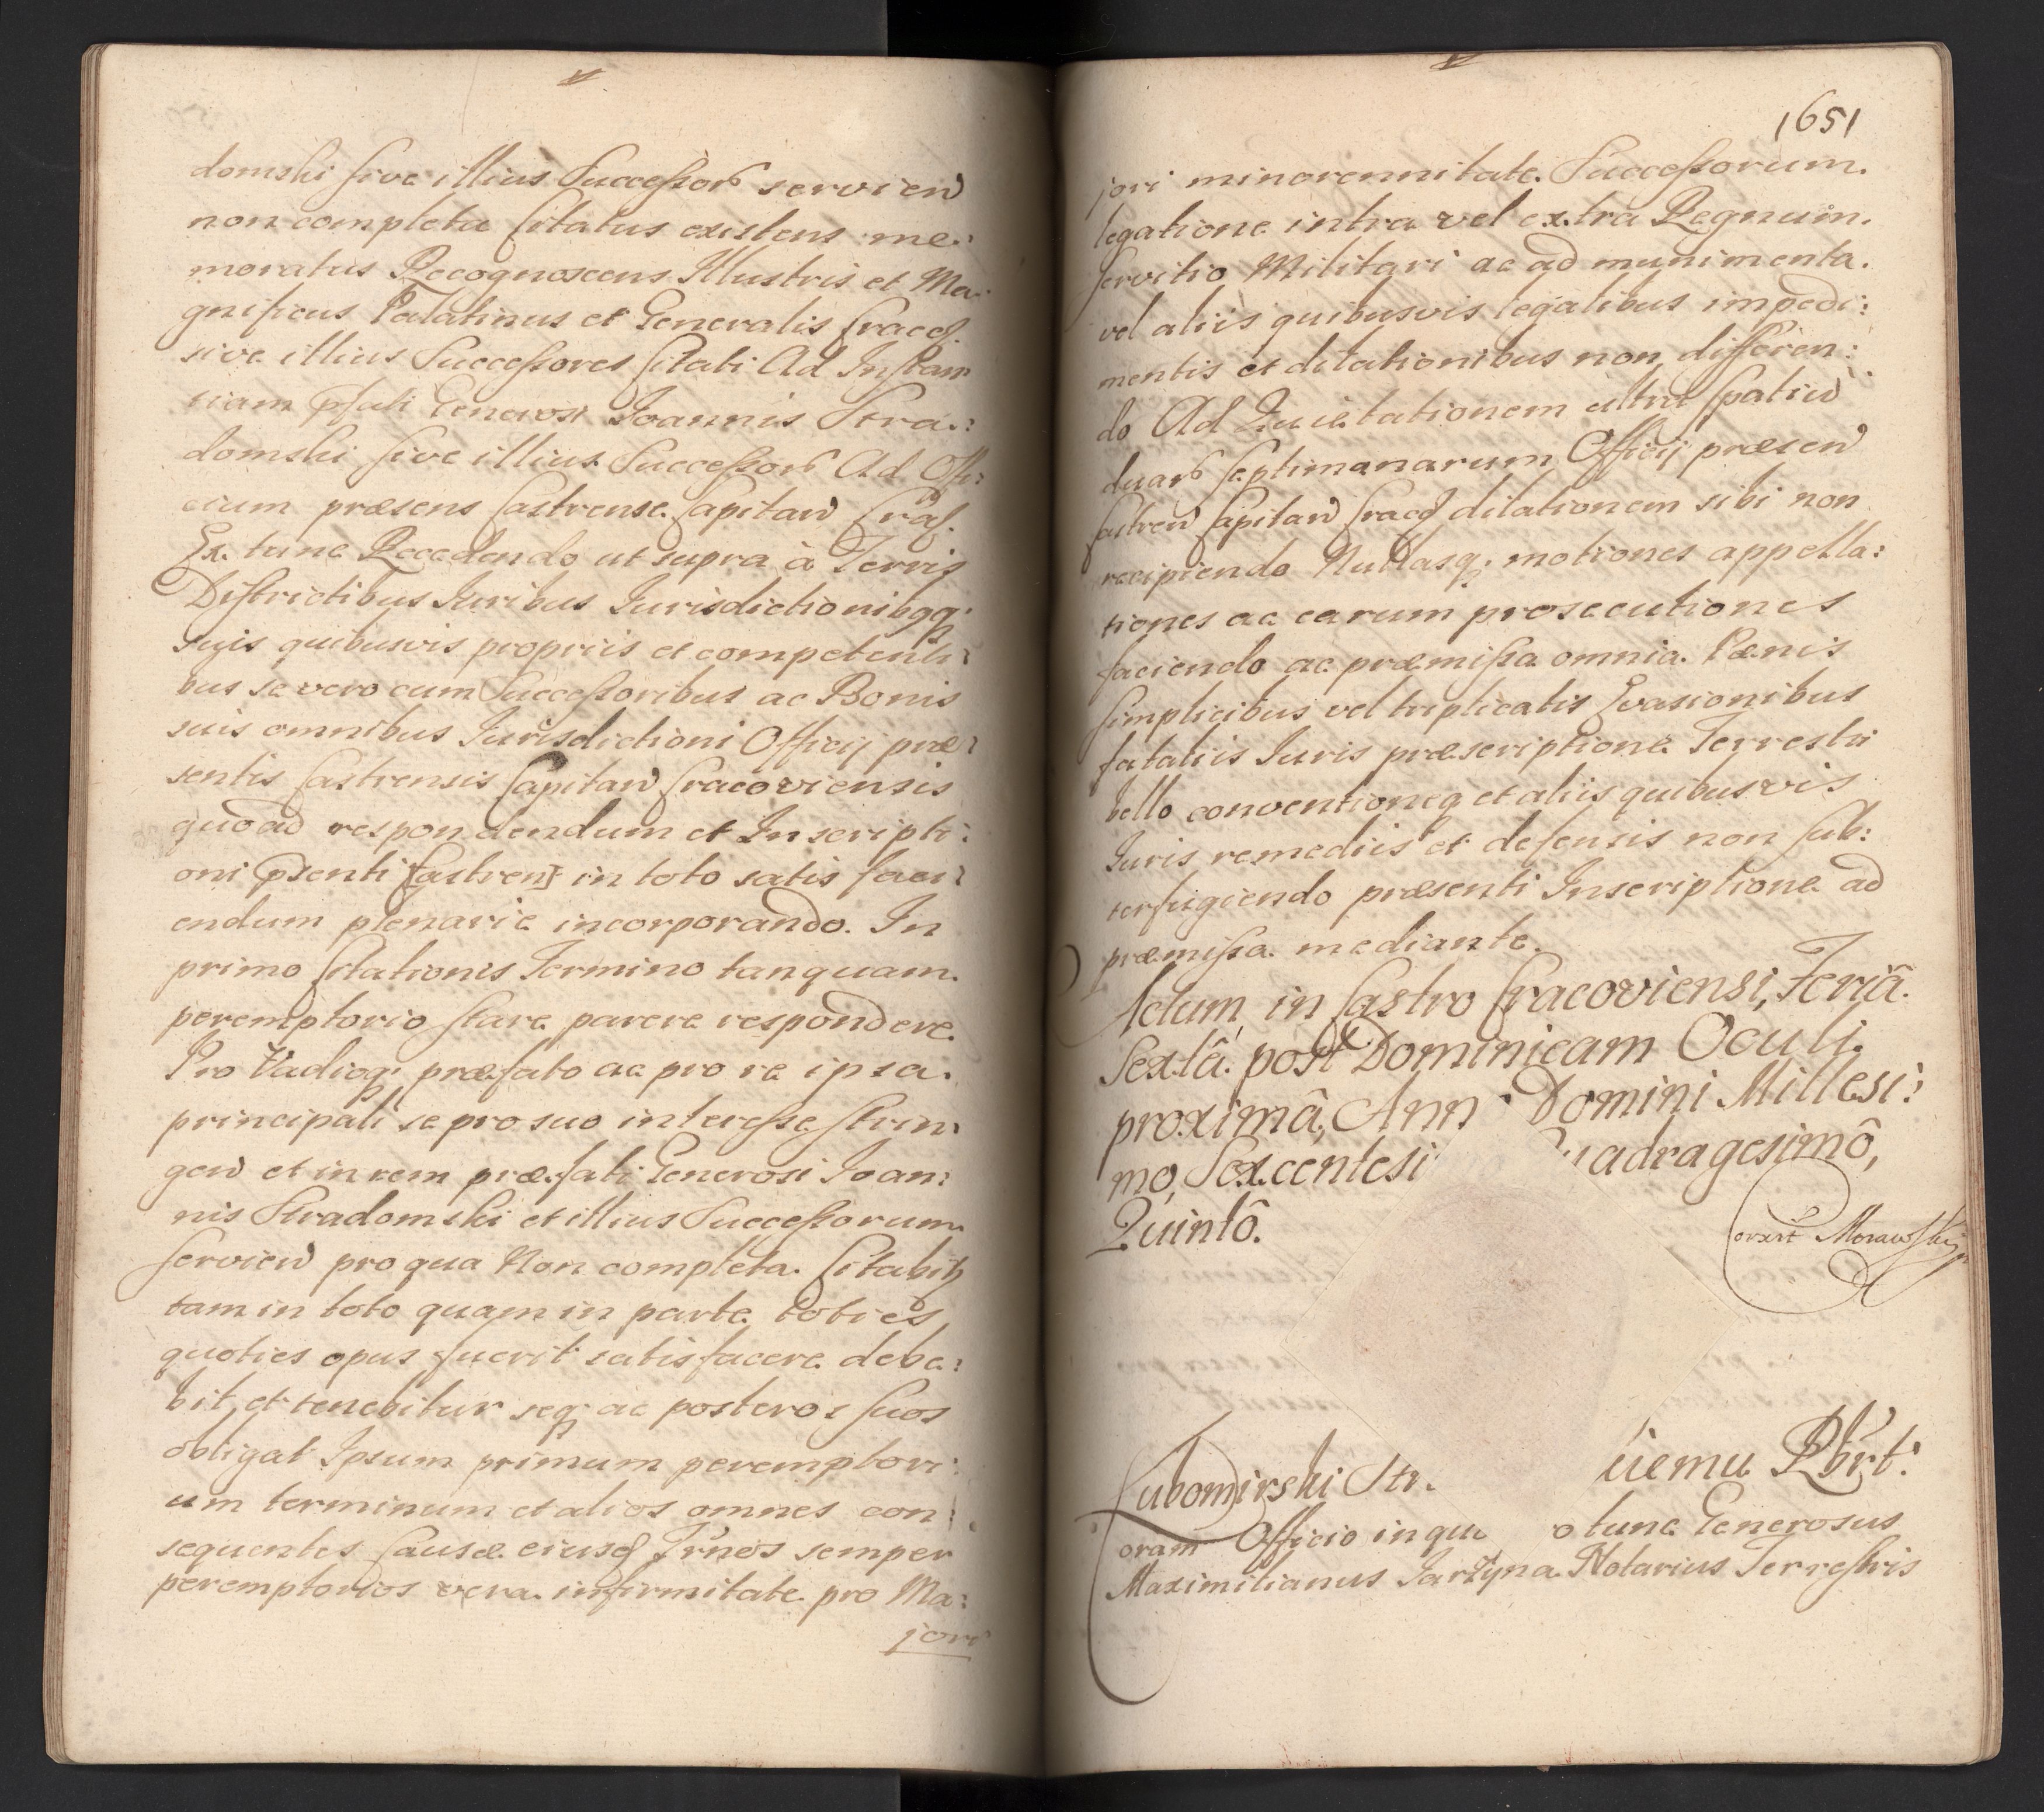 domski sive illius Successorū servien
non completa Citatus existens me:
moratus Recognoscens Illustris et Ma:
gnificus Palatinus et Generalis Craco͠f.
sive illius Successores Citati Ad Instan
tiam pfati Generosi Joannis Stra:
domski sive illius Successorū Ad Offi:
cium præsens Castrense Capitan Crac͠f.
Ex tunc Recedendo ut supra à Terris
Districtibus Iuribus Iurisdictionibqq
suis quibusvis propriis et competenti:
bus se vero cum Successoribus ac Bonis
suis omnibus Jurisdictioni Officij præ:
sentis Castrensis Capitan Cracoviensis
quoad respondendum et Inscripti:
oni p̃senti [Castren] in toto satis faci:
endum plenarie incorporando. In
primo Citationis Termino tanquam
peremptorio stare parere respondere.
Pro Vadioq; præfato ac pro re ipsa
principali se pro suo interesse strin:
gen et in rem præfati Generosi Joan:
nis Stradomski et illius Successorum
servien pro qua Non completa Citabitꝛ
tam in toto quam in parte toties
quoties opus fuerit satisfacere debe:
bit et tenebitur seq; ac posteros suos
obligat Ipsum primum peremptori:
um terminum et alios omnes con:
sequentes Causæ eiusd Trn̄os semper
peremptorios vera infirmitate pro Ma:
jori
1651
jori minorennitate Successorum.
legatione intra vel extra Regnum.
servitio Militari ac ad munimenta.
vel aliis quibusvis legalibus impedi:
mentis et dilationibus non differen:
do Ad Quietationem ultra spatiū
duarū septimanarum Officij præsen
Castren Capitan Crac͠f dilationem sibi non
recipiendo Nullasq; motiones appella:
tiones ac earum prosecutiones
faciendo ac præmissa omnia Pænis
simplicibus vel triplicatis Evasionibus
fataliis Iuris præscriptione Terrestri
bello conventioneq et aliis quibusvis
Iuris remediis et defensis non sub:
terfugiendo præsenti Inscriptione ad
præmissa mediante.
Actum in Castro Cracoviensi, Feriâ
Sextâ post Dominicam Oculi
proximâ, Ann Domini Millesi:
mo, Sexcentesi uadragesimô,
Quintô.
Corexit Morawski
Lubomirski Str. uemu Rbrt:
Coram Officio in qu o tunc Generosus
Maximilianus Jarzyna Notarius Terrestris